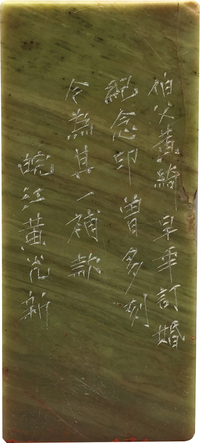 伯父黄绮早年訂婚
紀念印曾多刻
今為其一補款
皖江黄光新